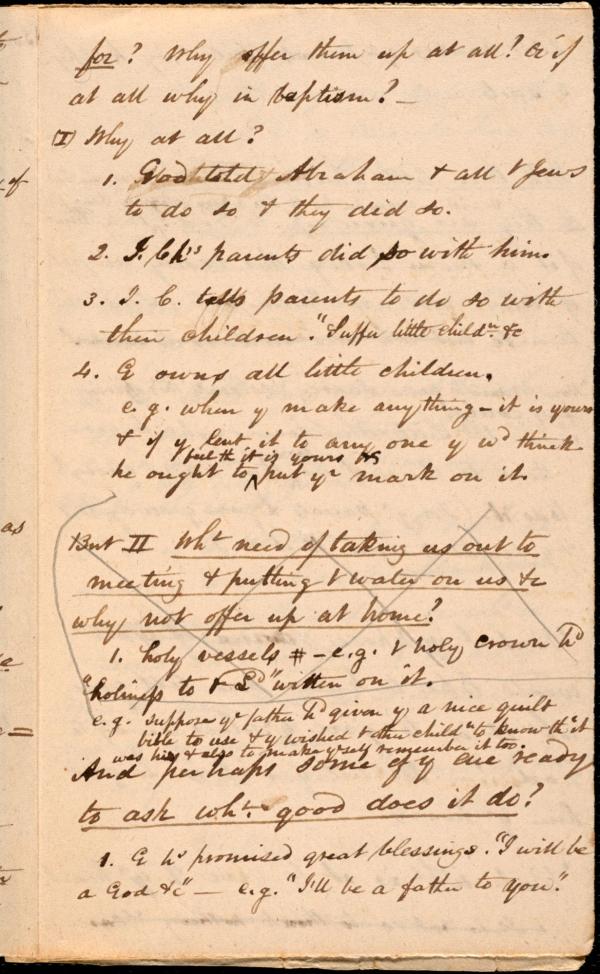 for? Why offer them up at all? Or if
at all why in baptism? —
(I) Why at all?
1. God told Abraham & all t Jews
to do so & they did so.
2. J. Ch's parents did so with him.
3. J. C. tells parents to do so with
their children. "Suffer little childn. &c
4. G owns all little children.
e.g. when y make anything — it is yours
& if y lent it to any one y wd think
he ought to put yr mark on it.
feel tht it is yours
But II Wht need of taking us out to
meeting & putting t water on us &c
why not offer up at home?
1. holy vessels # — e.g. t holy crown hd
"holiness to t Ld" written on it.
e.g. suppose yr father hd given y a nice guilt
bible to use & y wished t other childn to know tht it
was his & also to make yself remember it too.
And perhaps some of y are ready
to ask wht. good does it do?
1. G hs promised great blessings. "I will be
a God &c" — e.g. "I'll be a father to you".
of
as